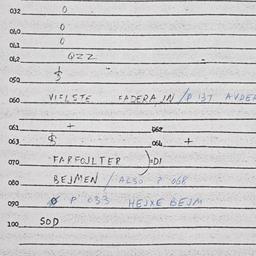 032 0
040 0
041 0
042 QZZ
050 $
060 VIELSTE FADERA IN /P 137 AVDER
061 + 062
063 $ 064 +
070 FARFOJLTER )=DI
080 BEJMEN / ALSO P 068
090 P 033 HEJXE BEJM
100 SOD